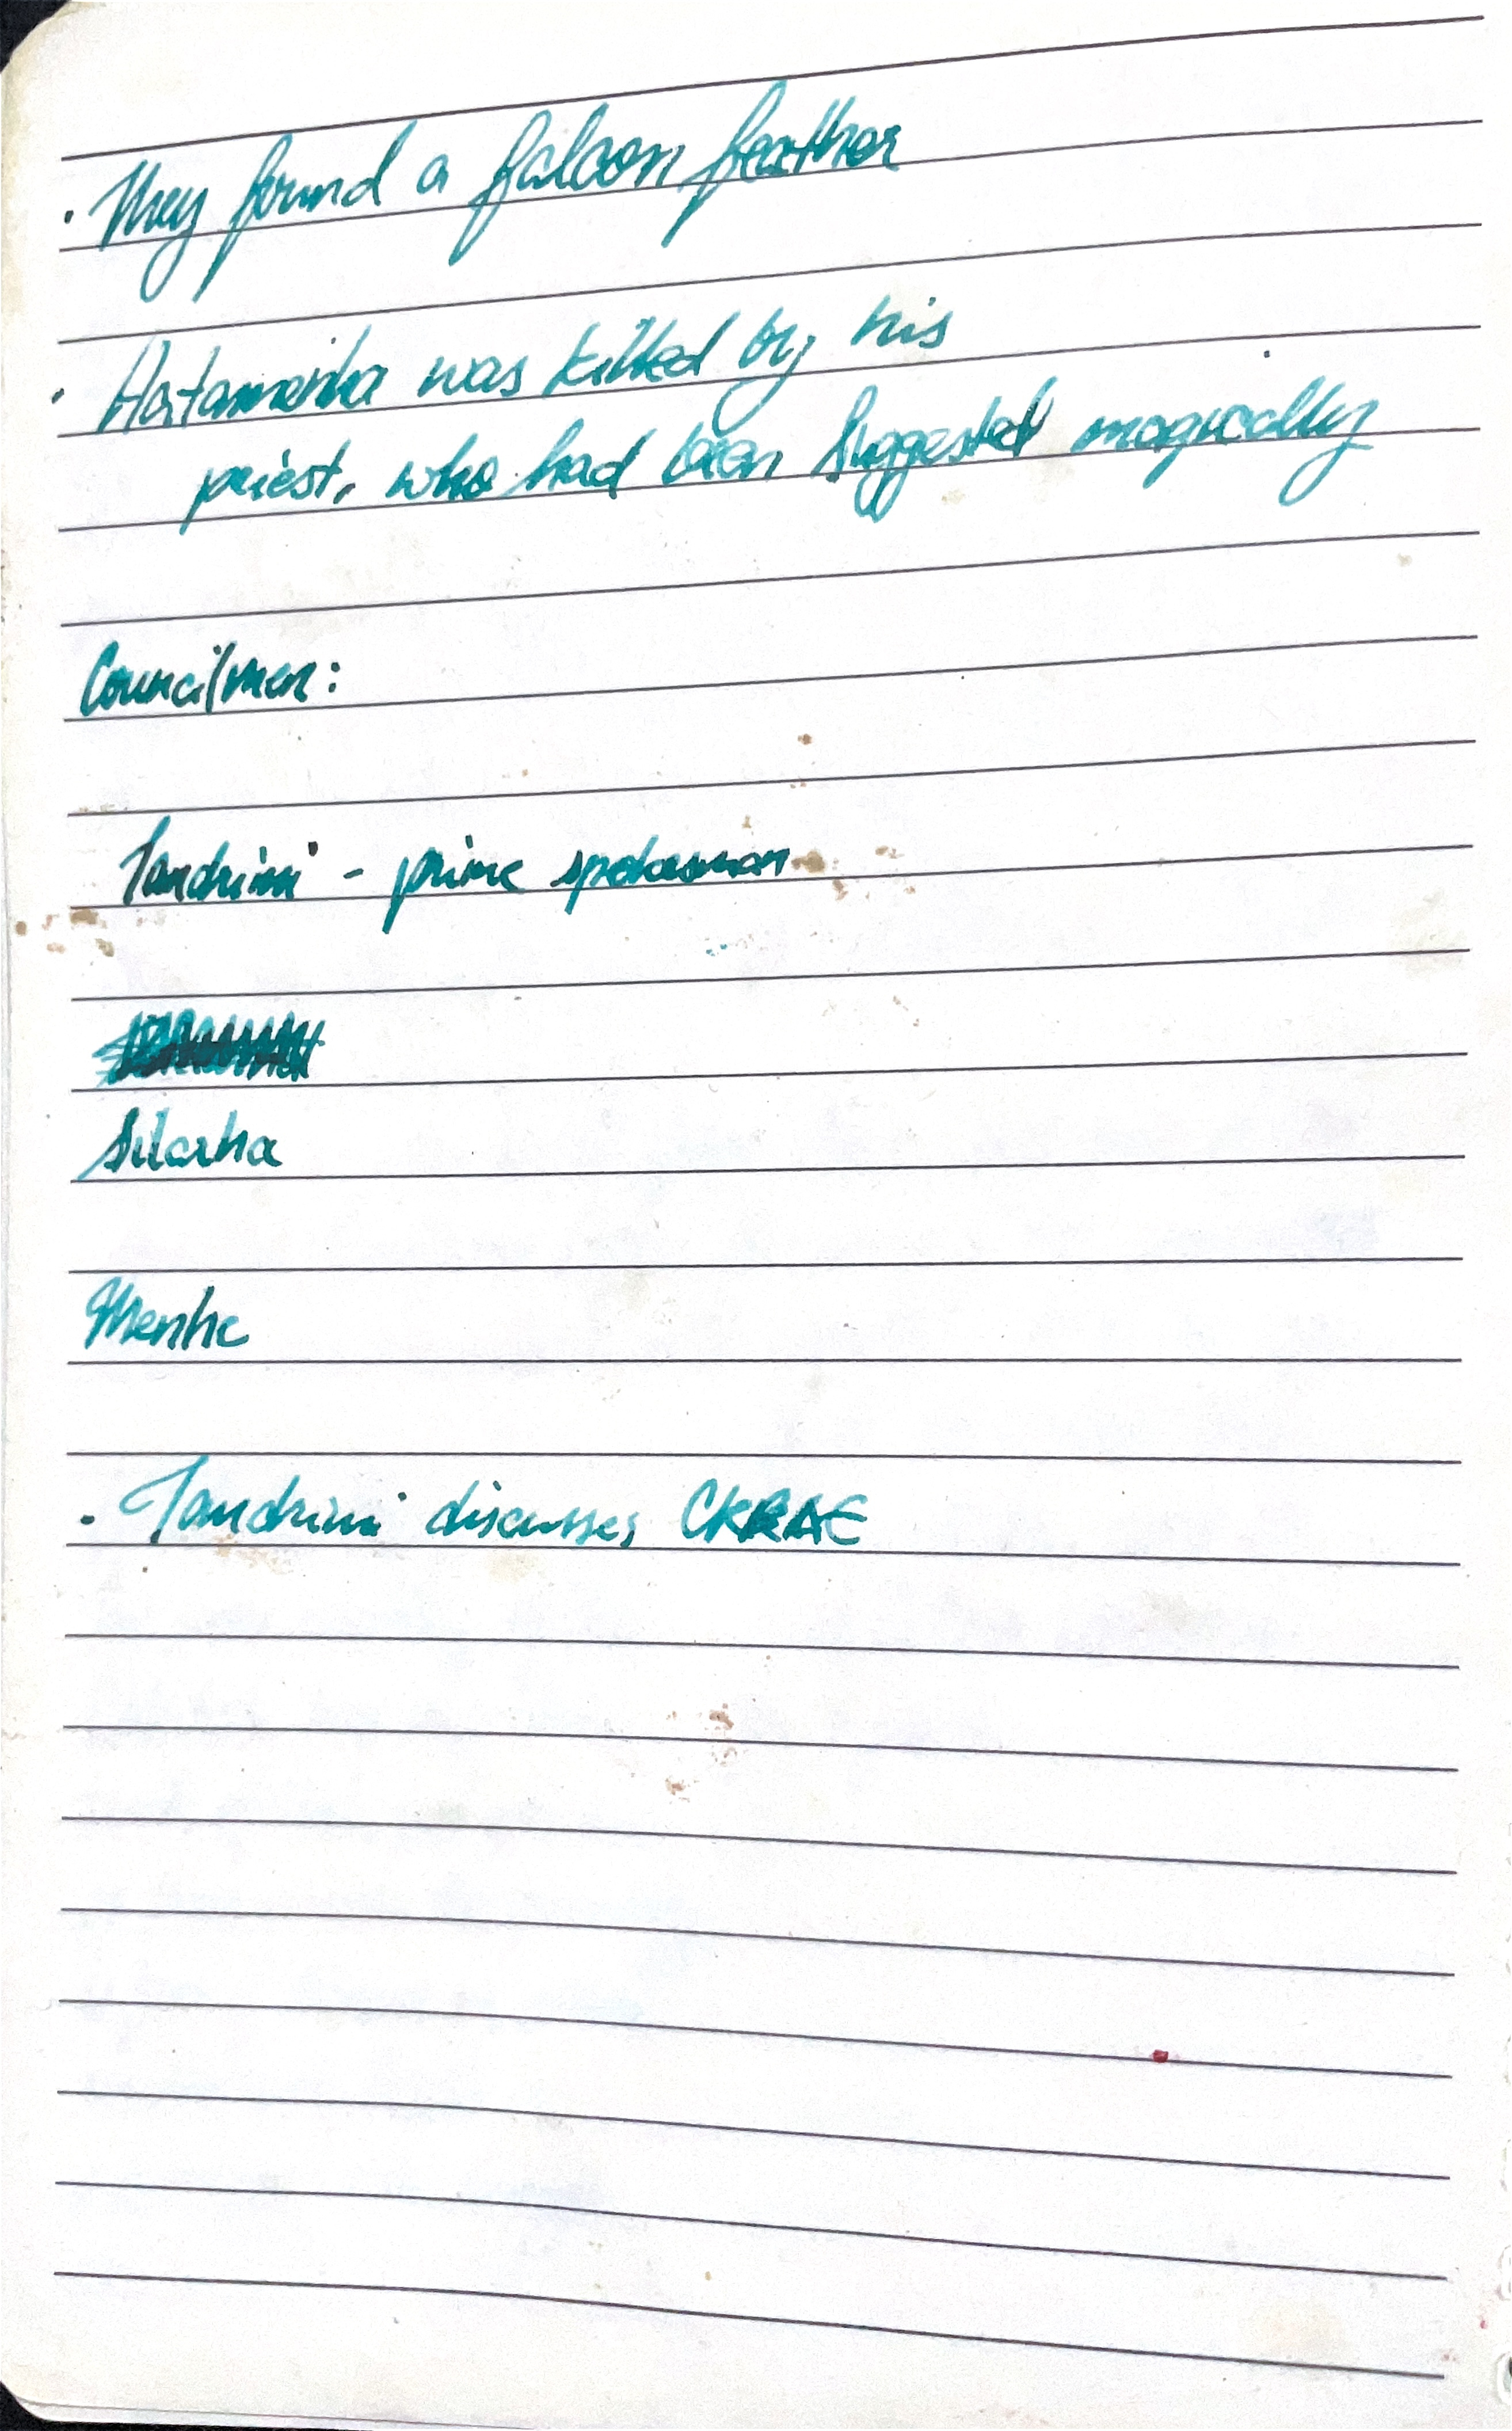 · They found a falcon feather
· was killed by his
priest, who had been Suggested magically
Councilmen:
Tandrimi - prime spokesman
Silarha
Menhe
· Tandrimi discusses